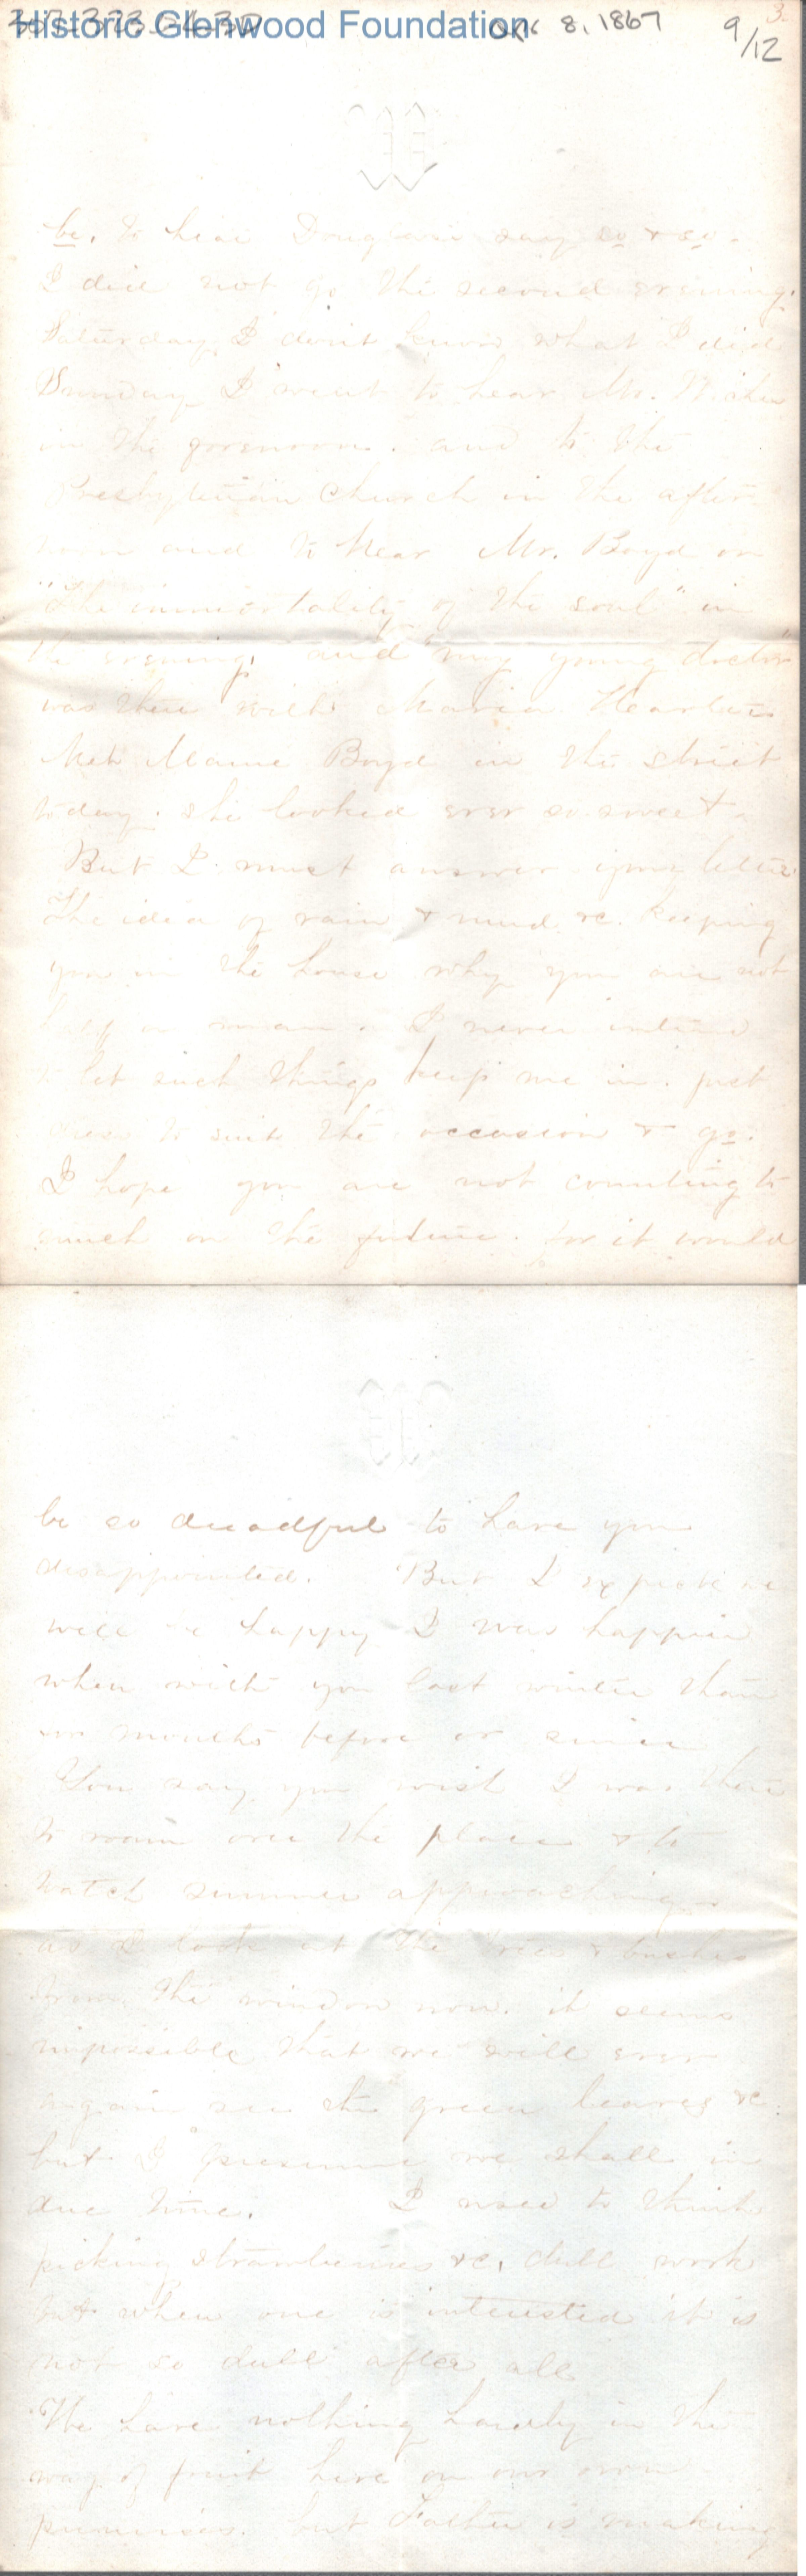 Historic Glenwood Foundation
8, 1867
9/12
3.
be, to hear Douglass say so & so.
I did not go the second evening.
Saturday I don't know what I did
Sunday I went to hear Mr.
in the forenoon. and to the
Presbyterian Church in the after
noon and to hear Mr. Boyd on
"The immortality of the soul" in
the evening, and "my young doctor"
was there with Maria
Met Mamie Boyd in the street
today. she looked ever so sweet.
But I must answer your letter.
The idea of rain & mud &c. keeping
you in the house why you are not
half a man. I never intend
to let such things keep me in. just
dress to suit the occasion & go.
I hope you are not counting to
much on the future. for it would
be so dreadful to have you
disappointed. But I expect we
will be happy I was happier
when with you last winter than
months before or since
You say you wish I was there
to roam over the place & to
watch summer approaching.
as I look at the trees & bushes
from the window now. it seems
impossible that we will ever
again see the green leaves &c.
but I presume we shall in
due time. I used to think
picking strawberries &c, dull work
but when one is interested it is
not so dull after all
We have nothing hardly in the
way of fruit here on our own
premises. but Father is making